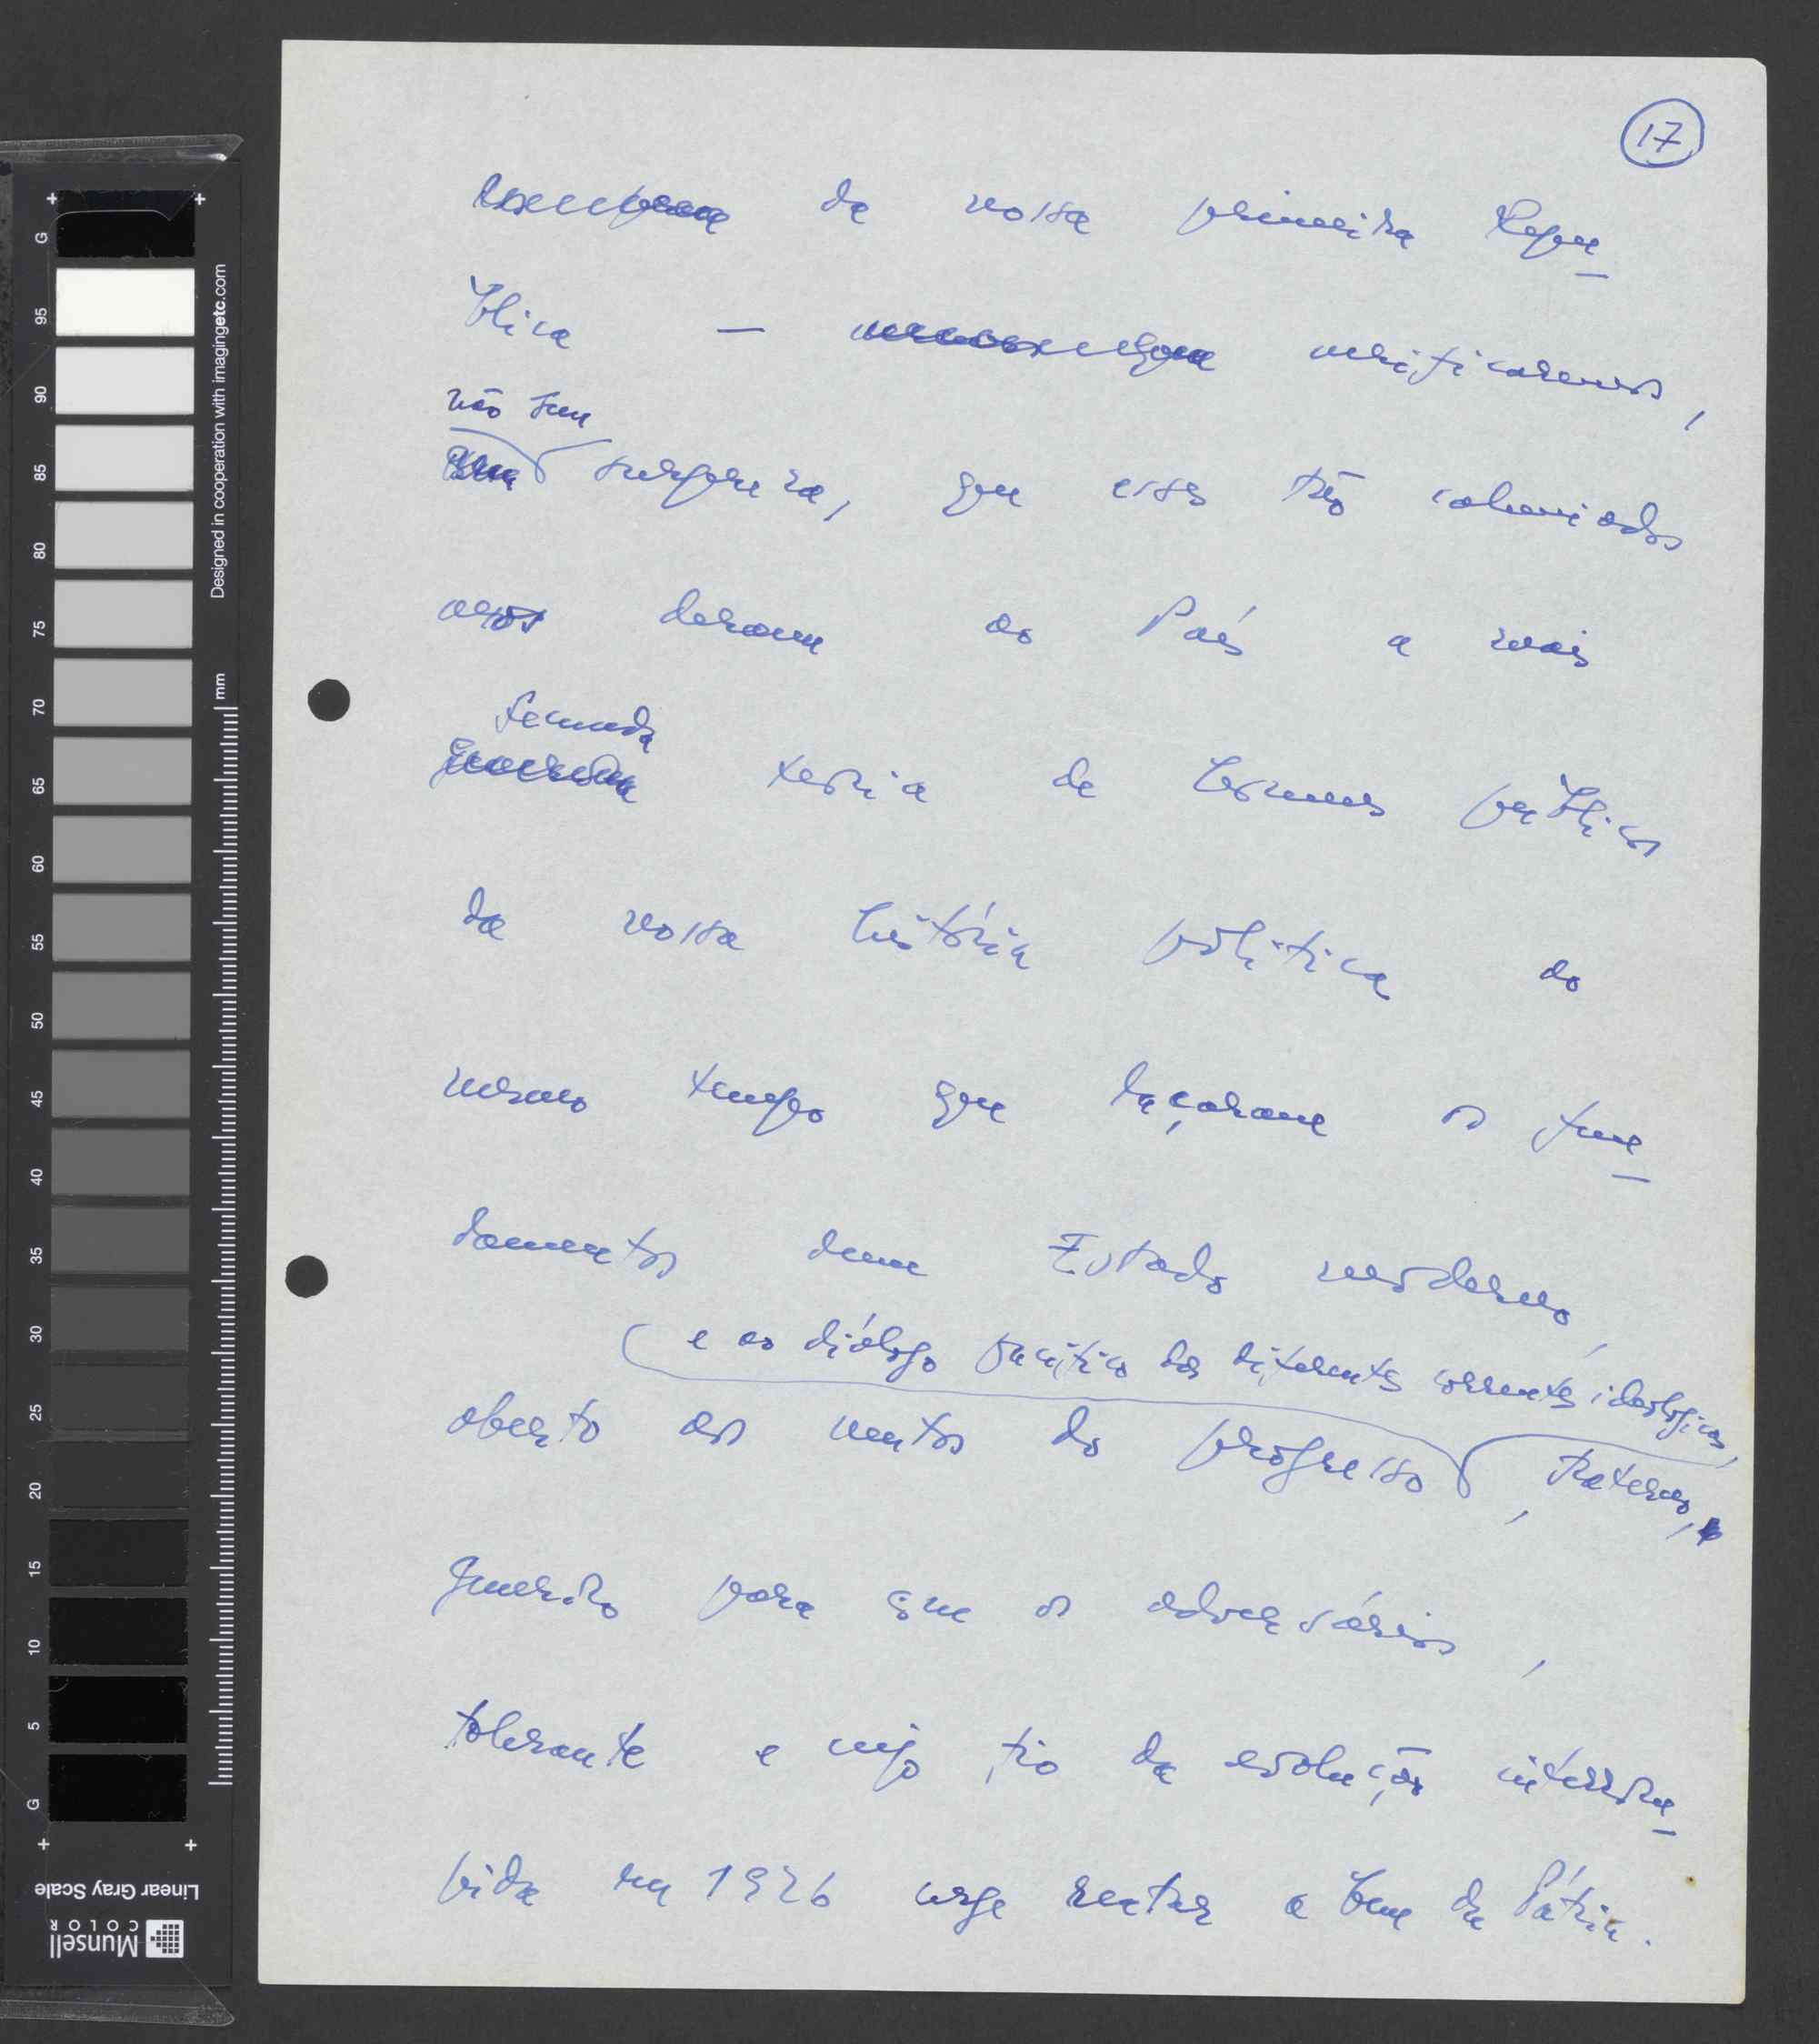 17
da nossa primeira Repú-
blica — verificaremos,
não sem
surpresa, que esses tão caluniados
anos deram ao País a mais
fecunda
série de homens públicos
da nossa história política ao
mesmo tempo que lançaram os fun-
damentos dum Estado moderno,
e ao diálogo pacífico das diferentes correntes ideológicas,
aberto aos ventos do progresso, fraterno,
generoso para que os adversários,
tolerante e cujo fio da evolução interrom-
pida em 1926 urge reatar a bem da Pátria.
G
95
90
85
80
75
70
65
60
55
50
45
40
35
30
25
20
15
10
5
G
mm
Designed in cooperation with imagingetc.com
Linear Gray Scale
Munsell
COLOR